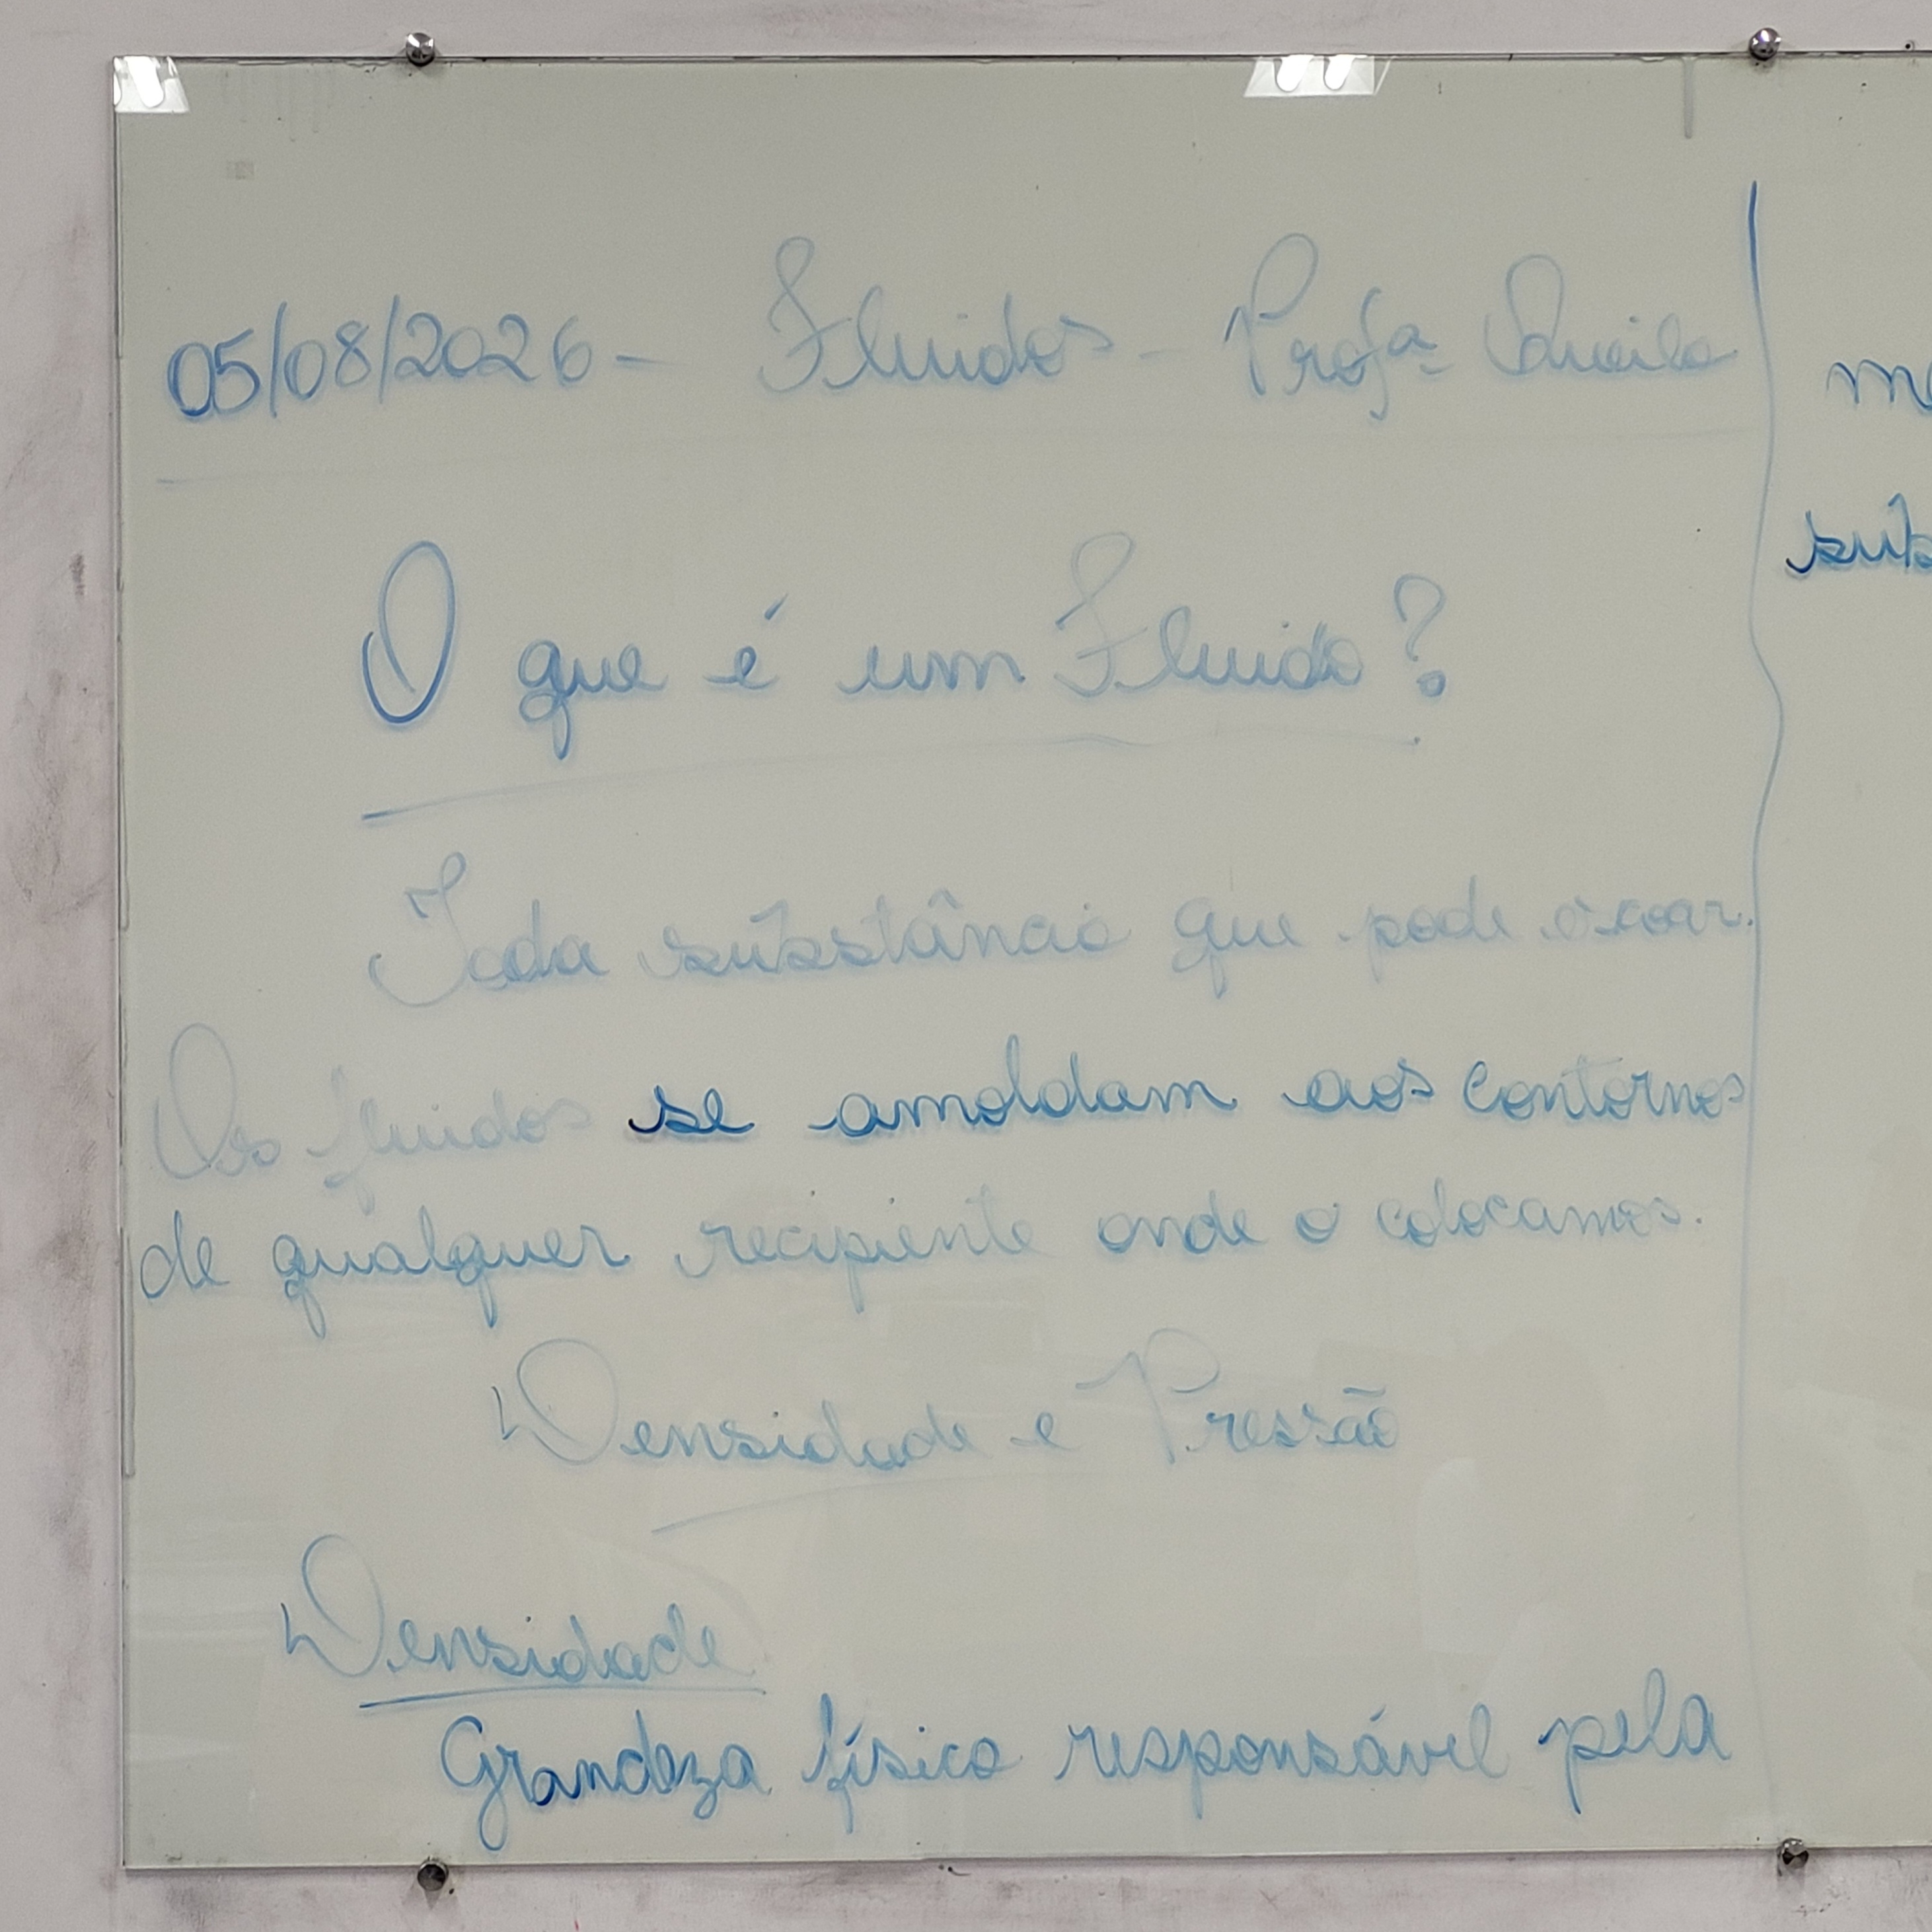 05/08/2026 - Fluidos - Profª Queila
O que é um Fluido?
Toda substância que pode escoar.
Os fluidos se amoldam aos contornos
de qualquer recipiente onde o colocamos.
Densidade e Pressão
Densidade
Grandeza física responsável pela
me
subs